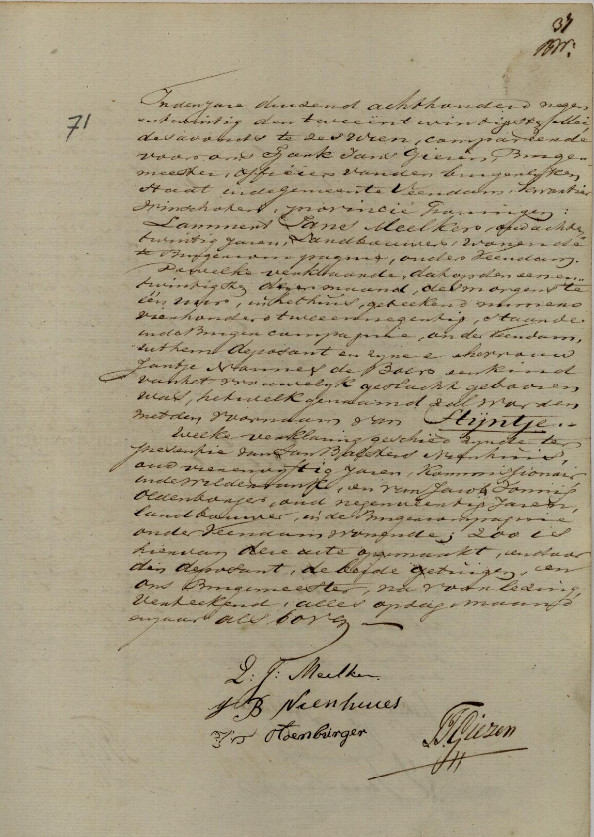 37
71
In den jare duizend achthonderd negen
entwintig den tweeentwintigste Mei
des avonds te zes uren, compareerde
voor ons Jan Giezen, Burge
meester, officier van den burgerlyken
staat in de gemeente Veendam, kwartier
Winschoten, provincie Groningen:
Lammert Jans Meelker, oud acht en
twintig jaren, landbouwer, wonende
te Burgercompagnie, onder Veendam.
Dewelke verklaarde, dat op den een en
twintigste dezer maand, des morgens te
één uur, in het huis, geteekend nummero
vierhonderd tweeennegentig, staande
in de Burgercompagnie, onder Veendam,
uit hem deposant en zyne eehevrouw
Jantje Nannes de Boer een kind
van het vrouwelyk geslacht geboren
was, het welk genaamd zal worden
met den voornaam van Stijntje.
Welke verklaring geschied zynde ter
presentie van Jan Nienhuis,
oud vierenvyftig jaren, kommissionair
in de Wildervank, en van Jacob
Oldenborger, oud negenentwintig jaren,
landbouwer, in de Burgercompagnie
onder Veendam wonende; zoo is
hiervan deze acte opgemaakt, en door
den deposant, de beide getuigen, en
ons Burgemeester, na voorlezing,
verteekend, alles op dag maand
en jaar als bove
L. J. Meelker
J B Nienhuis
Oldenburger
Giezen